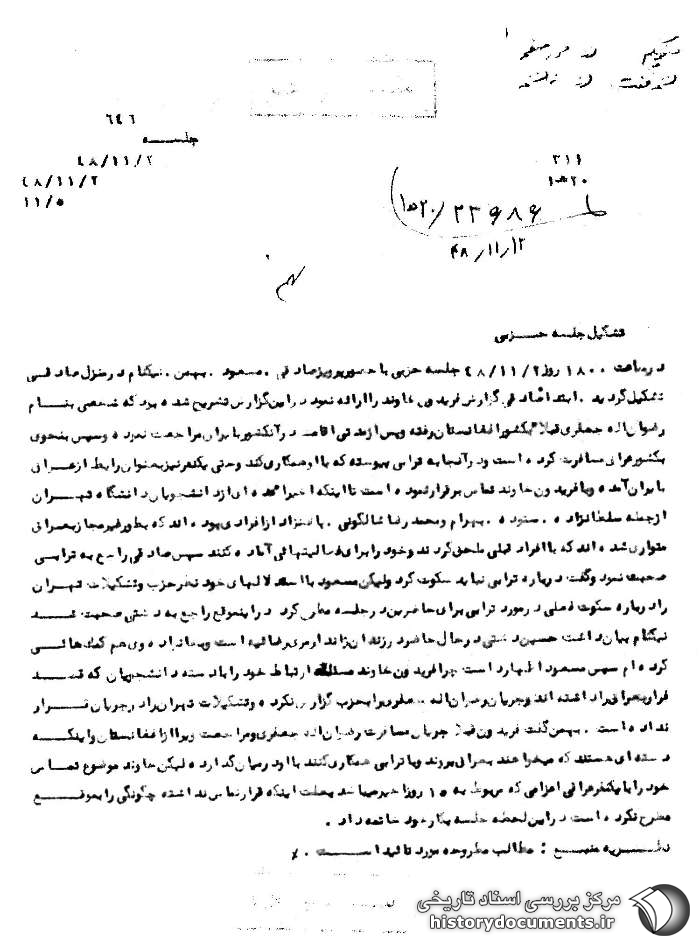 ۶۴۶
جلسه
۴۸/۱۱/۲
۴۸/۱۱/۲
۱۱/۵
۳۱۱
۲۰ ه‍ ۱
۴۸/۱۱/۱۲
تشکیل جلسه حزبی
در ساعت ۱۸۰۰ روز ۴۸/۱۱/۲ جلسه حزبی با حضور پرویز صادقی . مسعود . بهمن . نیکنام در منزل صادقی
تشکیل گردید . ابتدا صادقی گزارش فریدون خاوند را ارائه نمود در این گزارش تشریح شده بود که شخصی بنام
رضوان اله جعفری قبلا بکشور افغانستان رفته و پس از مدتی اقامت در آنکشور بایران مراجعت نموده و سپس بنحوی
بکشور عراق مسافرت کرده است و در آنجا به ترابی پیوسته که با او همکاری کند و حتی یکنفر نیز بعنوان رابط از عراق
بایران آمده و با فریدون خاوند تماس برقرار نموده است تا اینکه اخیرا عده ای از دانشجویان دانشگاه تهران
از جمله سلطانزاده . ستوده . بهرام و محمد رضا شالگونی . پاکنژاد از افرادی بوده اند که بطور غیر مجاز بعراق
متواری شده اند که با افراد قبلی ملحق گردند و خود را برای فعالیتهائی آماده کنند سپس صادقی راجع به ترابی
صحبت نمود و گفت درباره ترابی نباید سکوت کرد ولیکن مسعود با استدلالهای خود نظر حزب و تشکیلات تهران
را درباره سکوت فعلی در مورد ترابی برای حاضرین در جلسه مطرح کرد در اینموقع راجع به دشتی صحبت شد
نیکنام بیان داشت حسین دشتی در حال حاضر در زندان ژاندارمری رضائیه است و بخانواده وی هم کمک هائی
کرده ام سپس مسعود اظهار داشت چرا فریدون خاوند مسئله ارتباط خود را با دسته دانشجویان که قصد
فرار بعراق را داشته اند و جریان رضوان اله جعفری را بحزب گزارش نکرده و تشکیلات تهران را در جریان قرار
نداده است . بهمن گفت فریدون قبلا جریان مسافرت رضوان اله جعفری و مراجعت ویرا از افغانستان و اینکه
دسته ای هستند که میخواهند بعراق بروند و با ترابی همکاری کنند با او در میان گذارده لیکن خاوند موضوع تماس
خود را با یکنفر عراقی اعزامی که مربوط به ۱۵ روز اخیر میباشد بعلت اینکه قرار تماس نداشته چگونگی را بموقع
مطرح نکرده است در این لحظه جلسه بکار خود خاتمه داد .
نظریه منبع : مطالب مطروحه مورد تائید است .
مرکز بررسی اسناد تاریخی
historydocuments.ir